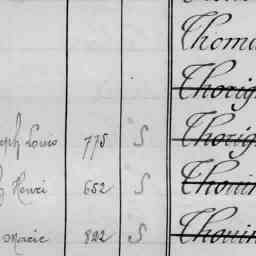 Thoma
Thorig
eph Louis 775 S Thorig
Henri 652 S Thouin
Marie 822 S Thouin